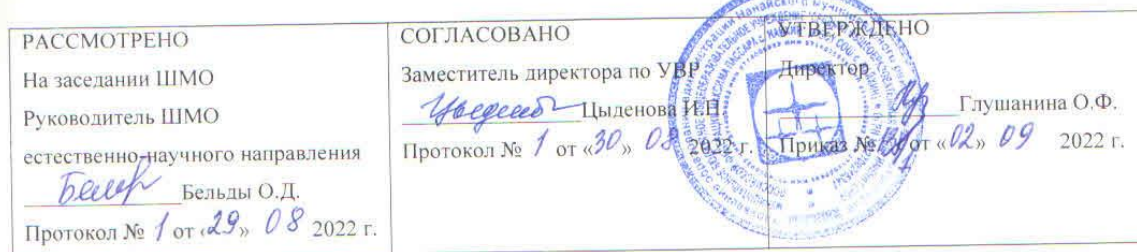 РАССМОТРЕНО
На заседании ШМО
Руководитель ШМО
естественно-научного направления
Бельды О.Д.
Протокол № 1 от «29» 08 2022 г.
СОГЛАСОВАНО
Заместитель директора по УВР
Цыденова И.П.
Протокол № 1 от «30» 08 2022 г.
УТВЕРЖДЕНО
Директор
Глушанина О.Ф.
Приказ № от «02» 09 2022 г.